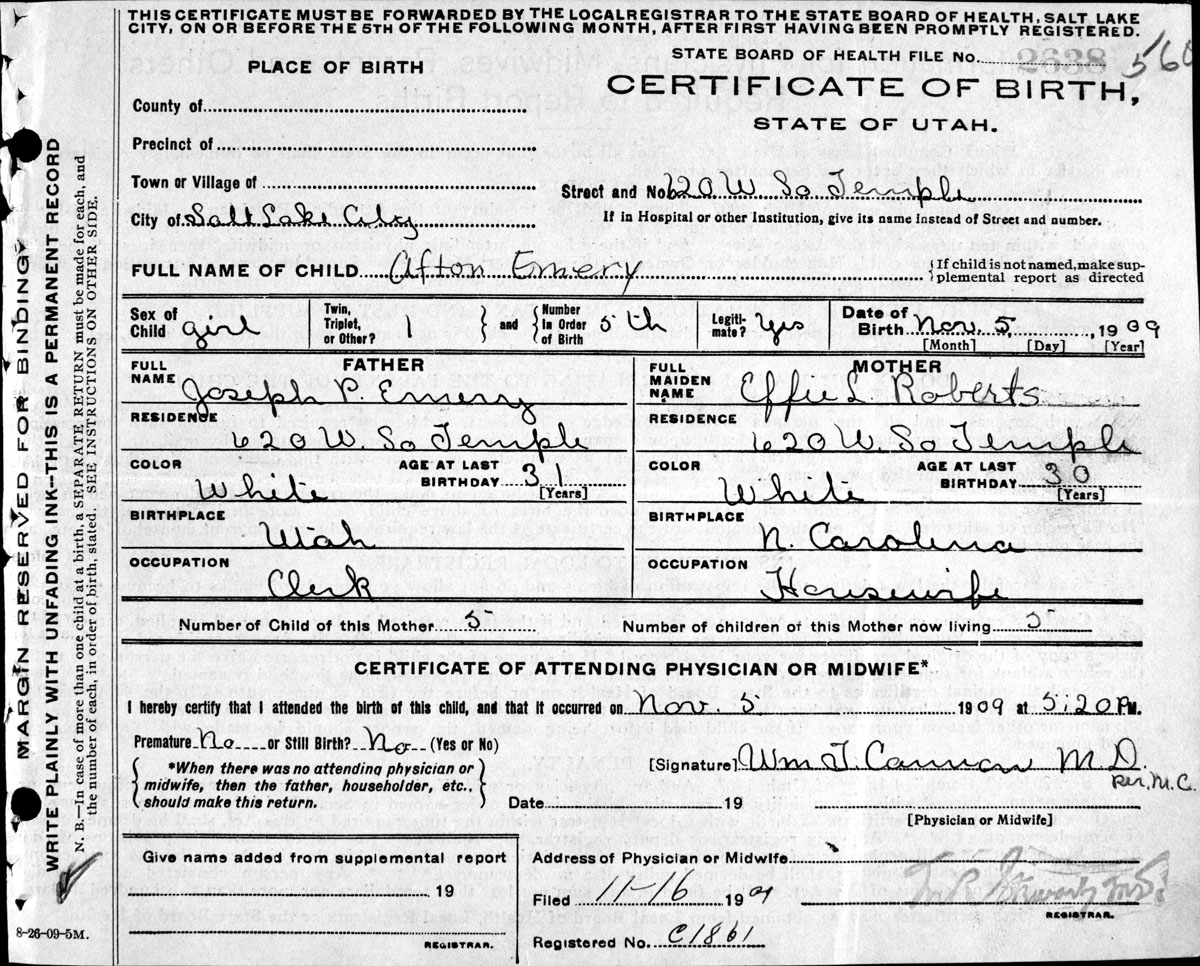 THIS CERTIFICATE MUST BE FORWARDED BY THE LOCAL REGISTRAR TO THE STATE BOARD OF HEALTH, SALT LAKE
CITY, ON OR BEFORE THE 5TH OF THE FOLLOWING MONTH, AFTER FIRST HAVING BEEN PROMPTLY REGISTERED.
STATE BOARD OF HEALTH FILE No. 2638 560
PLACE OF BIRTH
CERTIFICATE OF BIRTH,
STATE OF UTAH.
County of
Precinct of
Town or Village of
Street and No. 620 W. So Temple
City of Salt Lake City
If in Hospital or other Institution, give its name instead of Street and number.
FULL NAME OF CHILD Afton Emery
{If child is not named, make sup-
plemental report as directed
Sex of Child girl
Twin, Triplet, or Other? 1 } and { Number In Order of Birth 5th
Legiti-mate? Yes
Date of Birth Nov. 5, 1909
[Month] [Day] [Year]
FATHER
FULL NAME Joseph P. Emery
MOTHER
FULL MAIDEN NAME Effie L. Roberts
RESIDENCE 620 W. So Temple
RESIDENCE 620 W. So Temple
COLOR White
AGE AT LAST BIRTHDAY 31 [Years]
COLOR White
AGE AT LAST BIRTHDAY 30 [Years]
BIRTHPLACE Utah
BIRTHPLACE N. Carolina
OCCUPATION Clerk
OCCUPATION Housewife
Number of Child of this Mother 5
Number of children of this Mother now living 5
CERTIFICATE OF ATTENDING PHYSICIAN OR MIDWIFE*
I hereby certify that I attended the birth of this child, and that it occurred on Nov. 5 1909 at 5:20 PM.
Premature No or Still Birth? No (Yes or No)
{ *When there was no attending physician or
midwife, then the father, householder, etc.,
should make this return. }
[Signature] Wm T. Cannon M.D.
per. M.C.
Date 19
[Physician or Midwife]
Give name added from supplemental report
19
REGISTRAR.
Address of Physician or Midwife
Filed 11-16 1909
REGISTRAR.
Registered No. C1861
MARGIN RESERVED FOR BINDING
WRITE PLAINLY WITH UNFADING INK--THIS IS A PERMANENT RECORD
N. B.--In case of more than one child at a birth, a SEPARATE RETURN must be made for each, and
the number of each, in order of birth, stated. SEE INSTRUCTIONS ON OTHER SIDE.
8-26-09-5M.